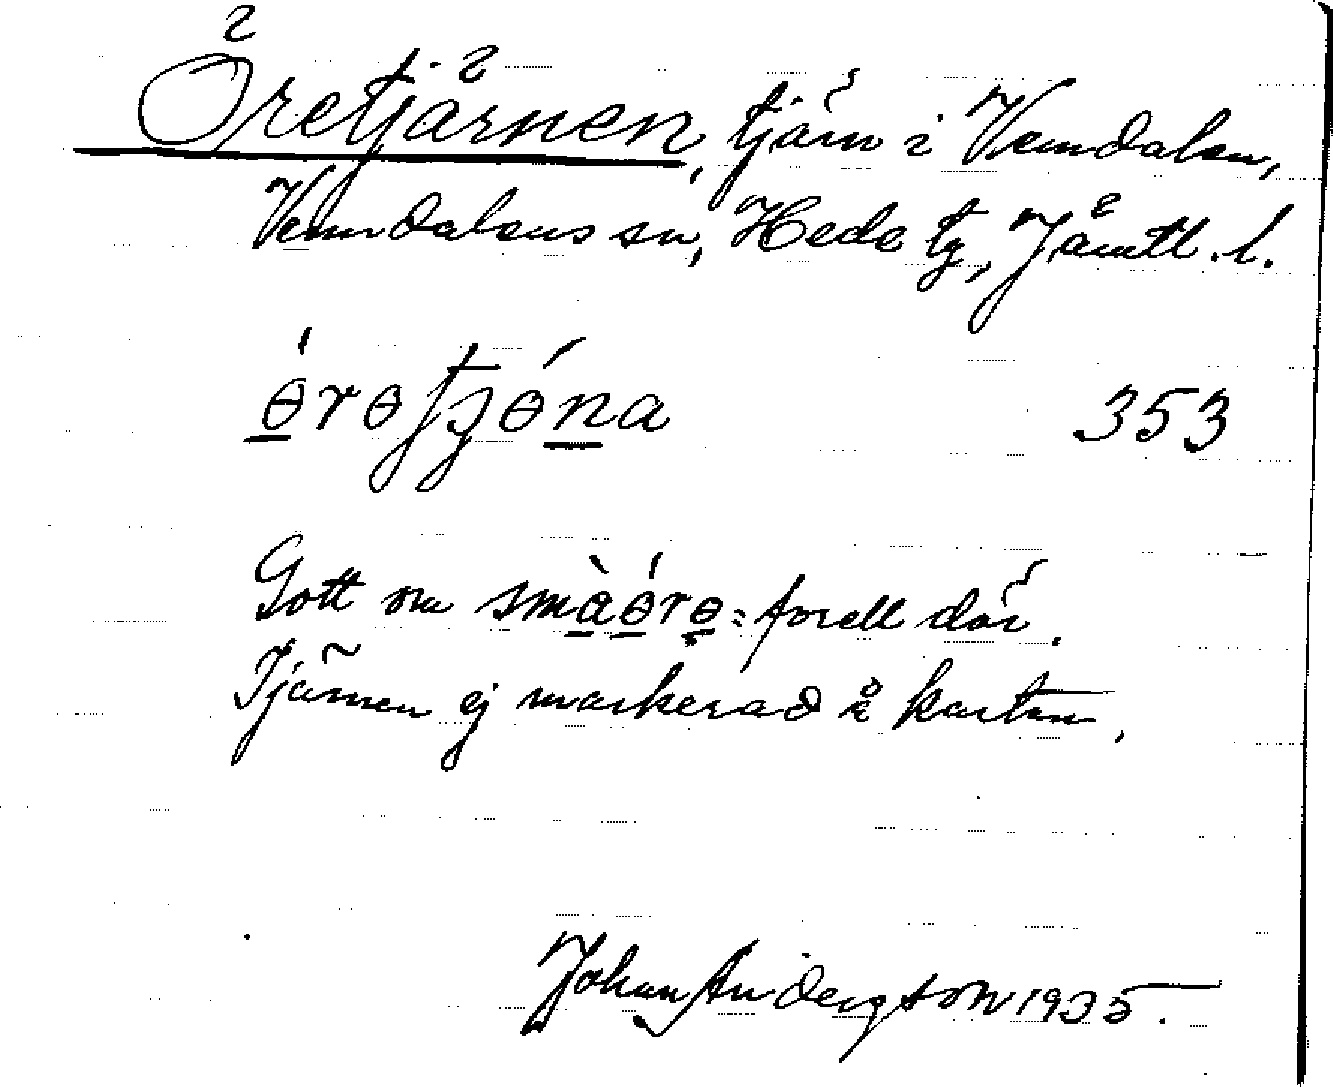 Öretjärnen, tjärn i Vemdalen,
Vemdalens sn, Hede tg, Jämtl. l.
353
Gott om småøre = forell där.
Tjärnen ej markerad å kartan.
Johan Anderzson 1935.